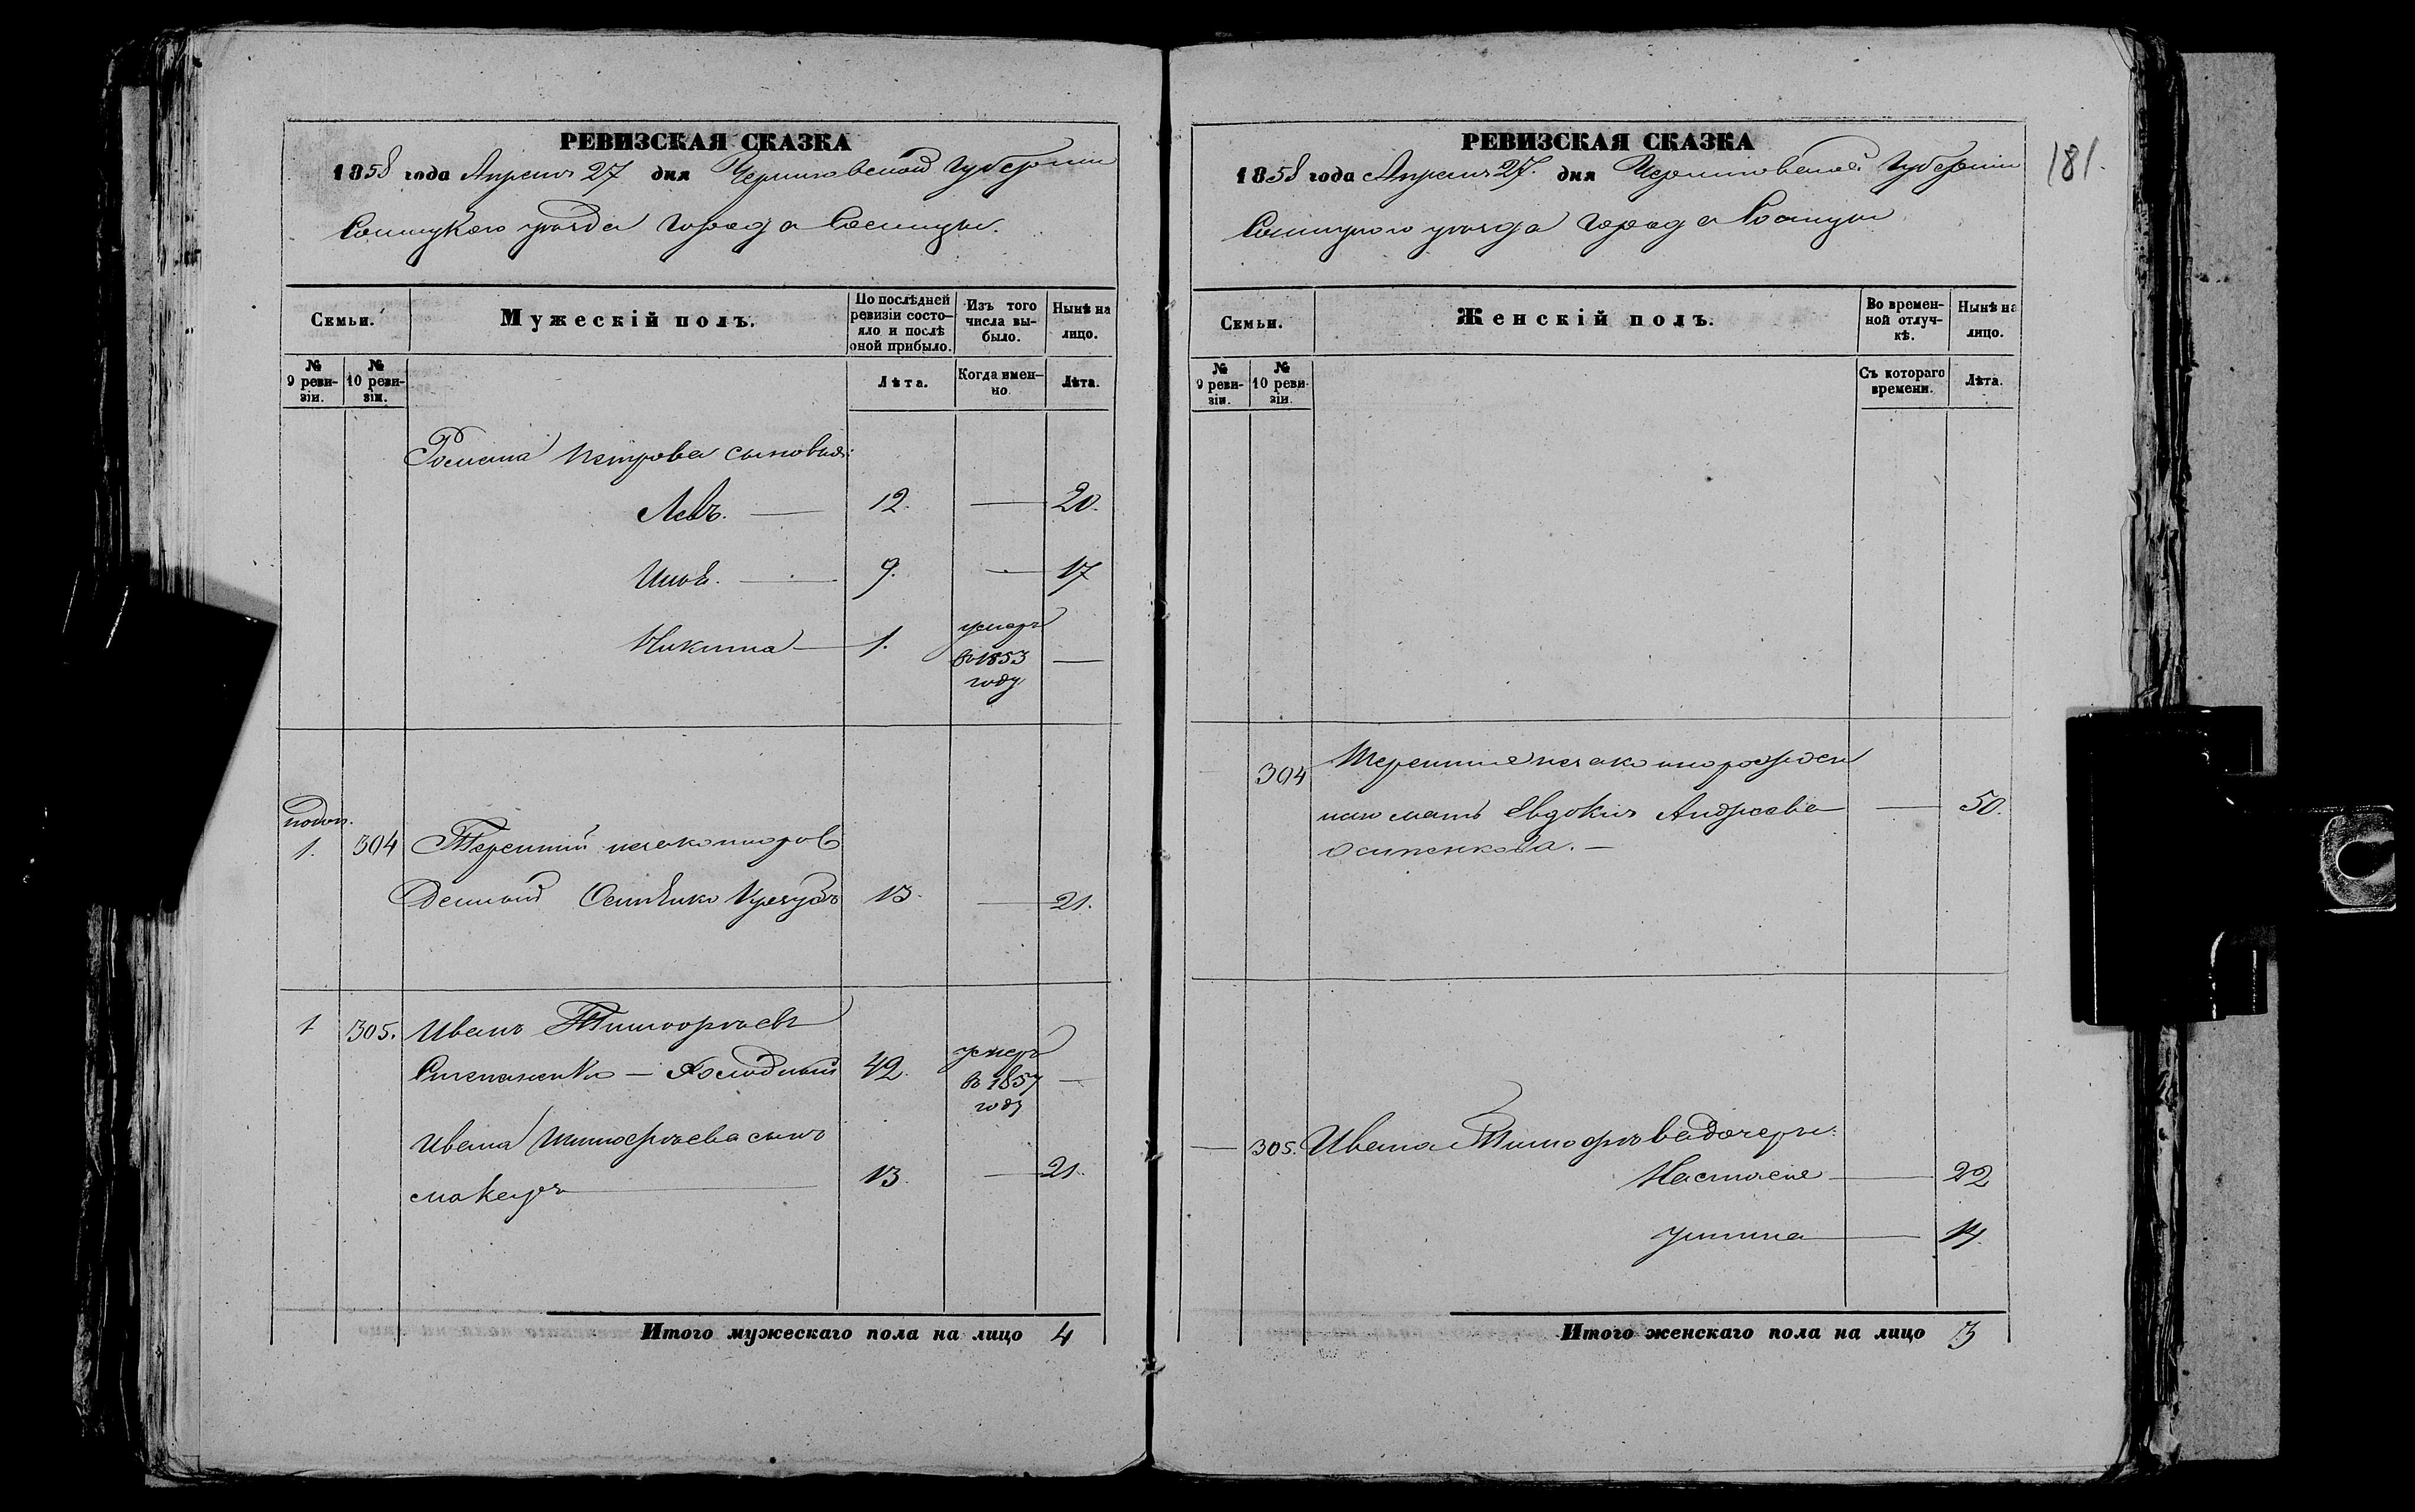 РЕВИЗСКАЯ СКАЗКА
1858 года Апреля 27 дня Черниговской Губернии
Сосницкаго уезда города Сосницы.
Семьи.
Мужескій полъ.
По послѣдней ревизіи состо-
яло и послѣ
оной прибыло.
Изъ того
числа вы-
было.
Нынѣ на
лицо.
№
9 реви-
зіи.
№
10 реви-
зіи.
Лѣта.
Когда имен-
но.
Лѣта.
Романа Петрова сыновья:
Левъ. — 12. — 20.
9. — 17
Никита — 1. умеръ
въ 1853
году —
1. 304 Терентій незаконорож
денный 13. — 21.
1 305. Иванъ Тимофѣевъ
Степаненко — Холодный 42. умеръ
въ 1857
году —
Ивана Тимофѣева сынъ
Макаръ — 13. — 21.
Итого мужескаго пола на лицо 4
РЕВИЗСКАЯ СКАЗКА
1858 года Апреля 27. дня Черниговской Губернии
Сосницкаго уезда города Сосницы
181.
Семьи.
Женскій полъ.
Во времен-
ной отлуч-
кѣ.
Нынѣ на
лицо.
№
9 реви-
зіи.
№
10 реви-
зіи.
Съ котораго
времени.
Лѣта.
304 Терентия незаконорожден
наго мать Евдокия Андреева — 50.
Осипенкова. —
— 305. Ивана Тимофѣева дочери:
Настасия — 22
Устина — 14.
Итого женскаго пола на лицо 3